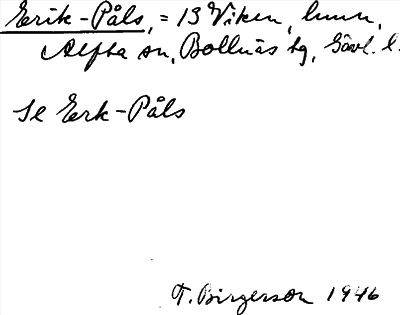 Eerik-Påls, = 13 Viken, hmn,
Alfta sn, Bollnäs tg, Gävl. l.
Se Eerk-Påls
T. Birgerson 1946